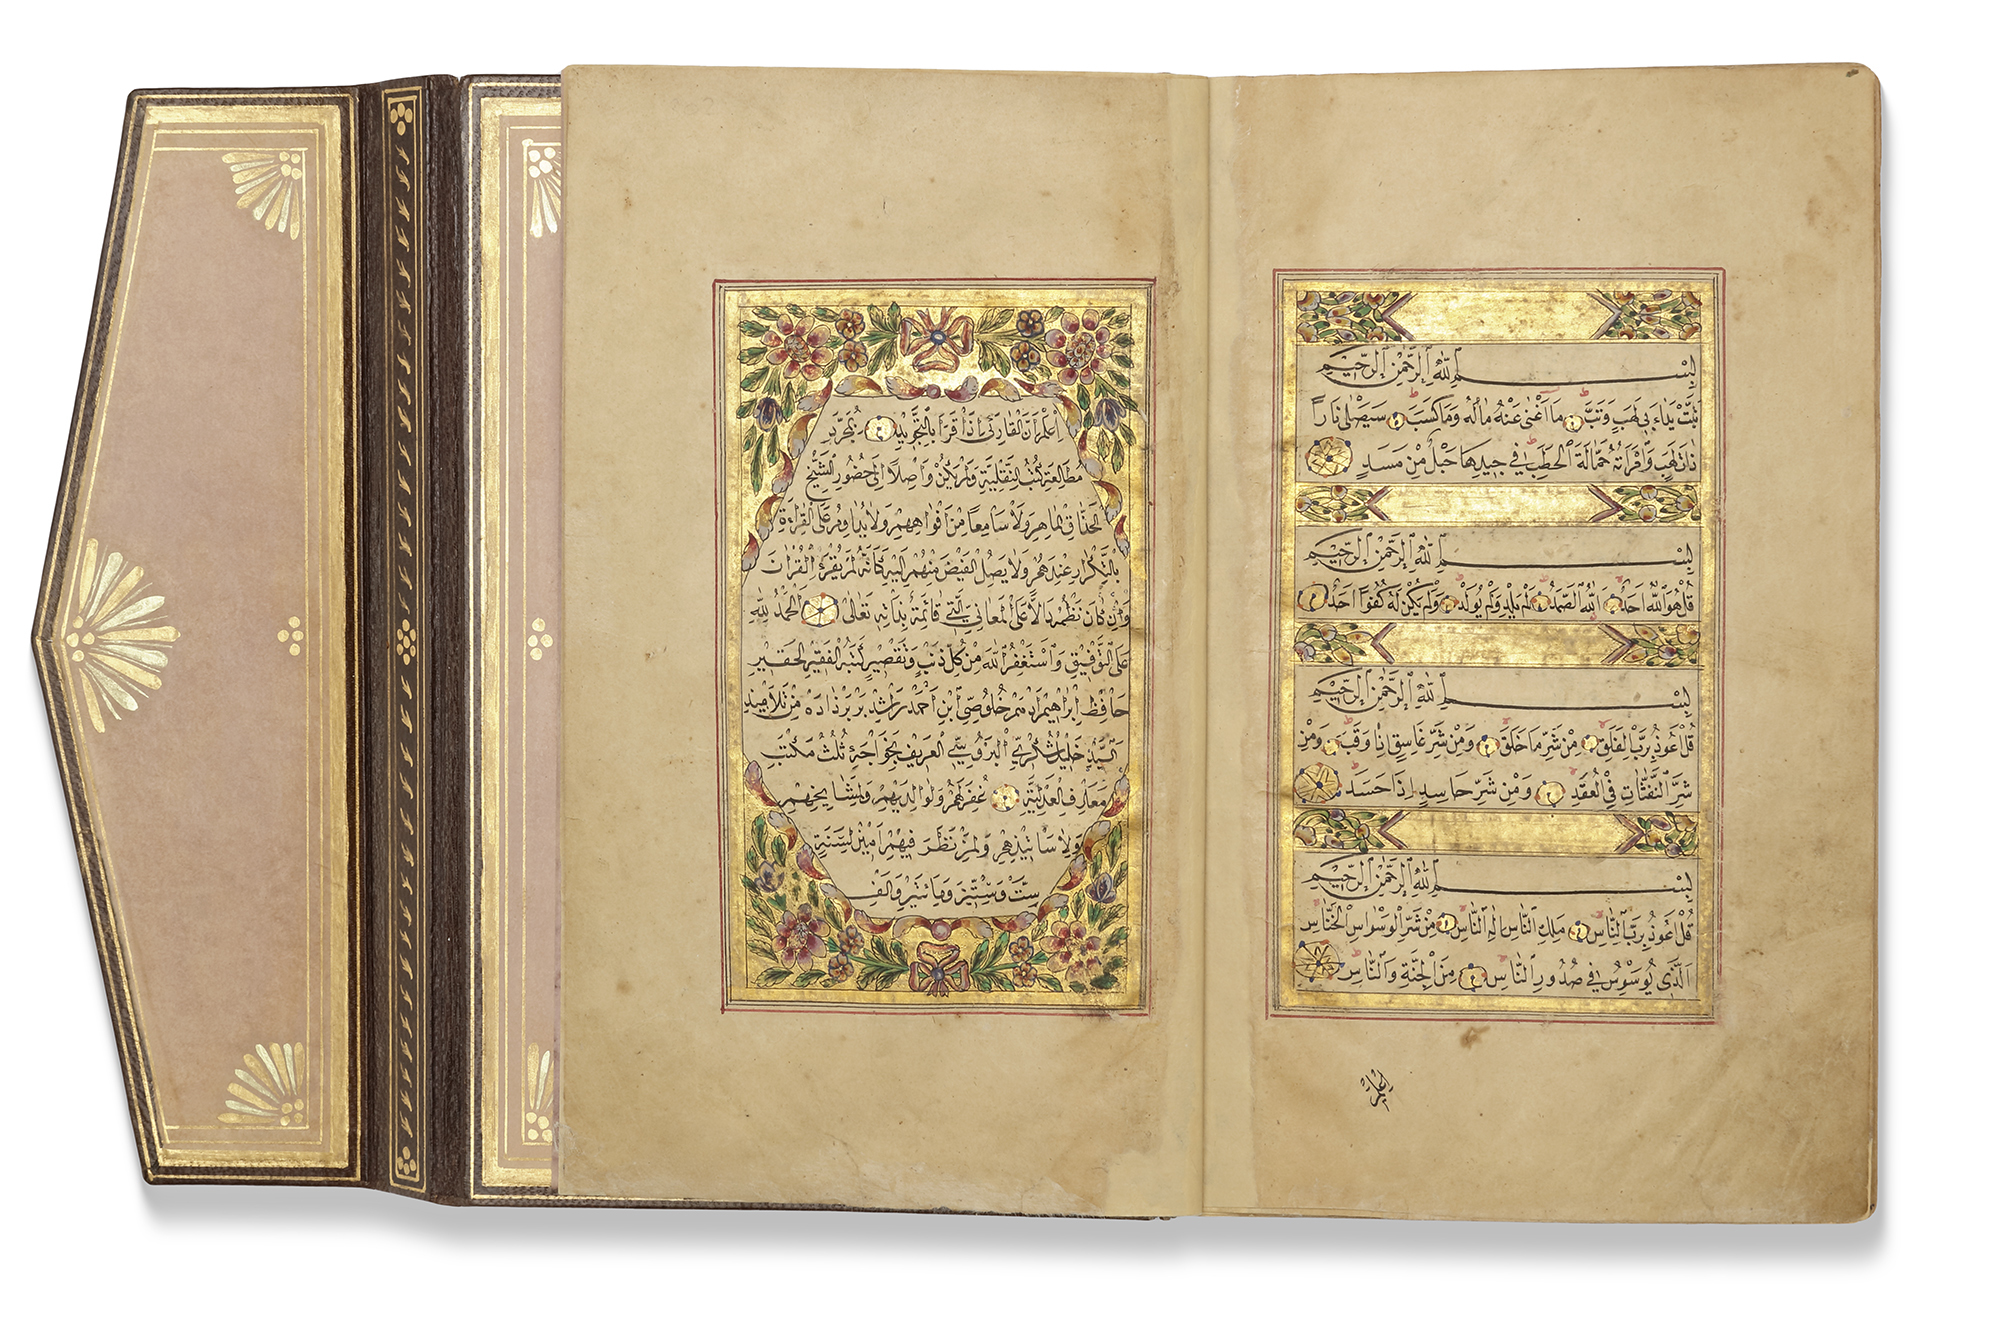 بِسْمِ اللهِ الرَّحْمٰنِ الرَّحِيمِ
تَبَّتْ يَدَا اَبِي لَهَبٍ وَتَبَّ مَا اَغْنٰى عَنْهُ مَالُهُ وَمَا كَسَبَ سَيَصْلٰى نَارًا
ذَاتَ لَهَبٍ وَامْرَاَتُهُ حَمَّالَةَ الْحَطَبِ فِي جِيدِهَا حَبْلٌ مِنْ مَسَدٍ
بِسْمِ اللهِ الرَّحْمٰنِ الرَّحِيمِ
قُلْ هُوَ اللهُ اَحَدٌ اَللهُ الصَّمَدُ لَمْ يَلِدْ وَلَمْ يُولَدْ وَلَمْ يَكُنْ لَهُ كُفُوًا اَحَدٌ
بِسْمِ اللهِ الرَّحْمٰنِ الرَّحِيمِ
قُلْ اَعُوذُ بِرَبِّ الْفَلَقِ مِنْ شَرِّ مَا خَلَقَ وَمِنْ شَرِّ غَاسِقٍ اِذَا وَقَبَ وَمِنْ
شَرِّ النَّفَّاثَاتِ فِي الْعُقَدِ وَمِنْ شَرِّ حَاسِدٍ اِذَا حَسَدَ
بِسْمِ اللهِ الرَّحْمٰنِ الرَّحِيمِ
قُلْ اَعُوذُ بِرَبِّ النَّاسِ مَلِكِ النَّاسِ اِلٰهِ النَّاسِ مِنْ شَرِّ الْوَسْوَاسِ الْخَنَّاسِ
اَلَّذِي يُوَسْوِسُ فِي صُدُورِ النَّاسِ مِنَ الْجِنَّةِ وَالنَّاسِ
اعلم
اعلم ان القارئ اذا قرأ بالتجويد بمجرد
مطالعة كتب النقلية ولم يكن واصلا الى حضور الشيخ
الحذاق الماهر ولا سامعا من افواههم ولا يداوم على القراءة
بالتكرار عندهم ولا يصل الفيض منهم اليه كأنه لم يقرئ القرآن
وان كان نظمه دالا على المعاني التي قائمة بذاته تعالى الحمد لله
على التوفيق واستغفر الله من كل ذنب وتقصير كتبه الفقير الحقير
حافظ ابراهيم ادهم خلوصي ابن احمد راشد بربرزاده من تلاميذ
السيد خليل شكري البروسي العريف بخواجه ثلث مكتب
معارف العدلية غفر لهم ولوالديهم ولمشايخهم
ولاساتيذهم ولمن نظر فيهم امين لسنة
ست وستين ومائتين والف